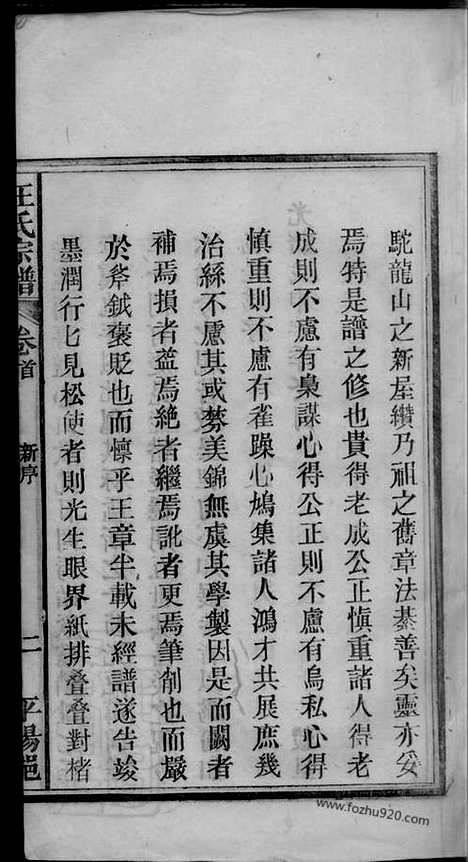 駝龍山之新屋纘乃祖之舊章法綦善矣靈亦妥
焉特是譜之修也貴得老成公正愼重諸人得老
成則不慮有梟謀心得公正則不慮有烏私心得
愼重則不慮有雀躁心鳩集諸人鴻才共展庶幾
治絲不慮其或棼美錦無虞其學製因是而闕者
補焉損者益焉絶者繼焉訛者更焉筆削也而嚴
於斧鉞褒貶也而懍乎王章半載未經譜遂告竣
墨潤行匕見松使者則光生眼界紙排叠叠對楮
汪氏宗譜 卷首 新序 二 平陽
www.fozhu920.com